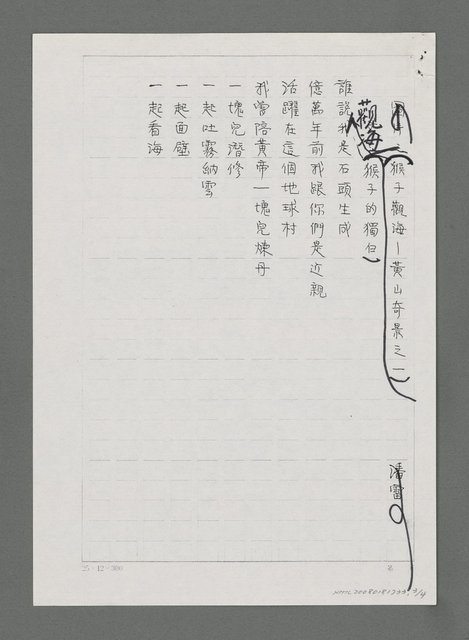 猴子觀海－黃山奇景之一
觀海
猴子的獨白
潘雷
誰說我是石頭生成
億萬年前我跟你們是近親
活躍在這個地球村
我曾陪黃帝一塊兒煉丹
一塊兒潛修
一起吐霧納雲
一起面壁
一起看海
25×12=300